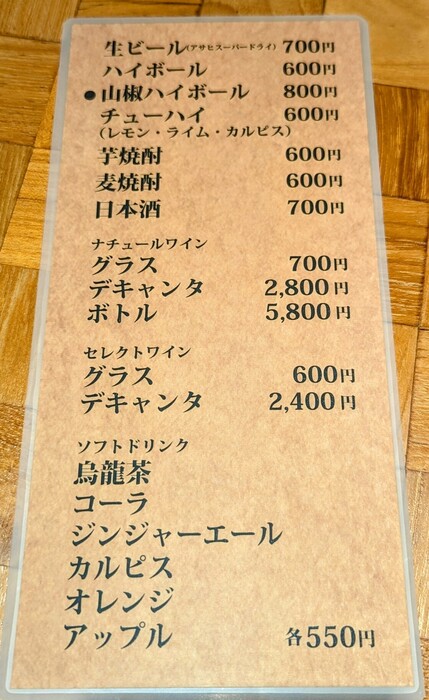 生ビール(アサヒスーパードライ) 700円
ハイボール 600円
●山椒ハイボール 800円
チューハイ 600円
(レモン・ライム・カルピス)
芋焼酎 600円
麦焼酎 600円
日本酒 700円
ナチュールワイン
グラス 700円
デキャンタ 2,800円
ボトル 5,800円
セレクトワイン
グラス 600円
デキャンタ 2,400円
ソフトドリンク
烏龍茶
コーラ
ジンジャーエール
カルピス
オレンジ
アップル 各550円